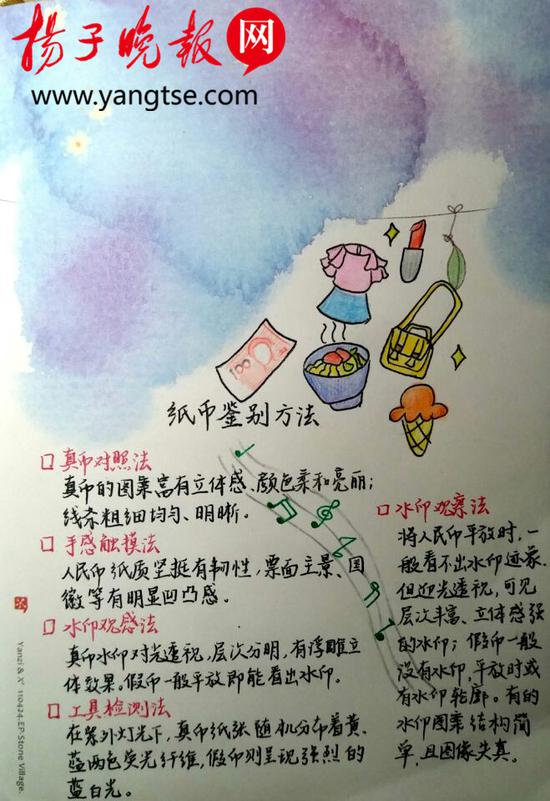 扬子晚报网
www.yangtse.com
100
纸币鉴别方法
真币对照法
真币的图案富有立体感、颜色柔和亮丽;
线条粗细均匀、明晰。
手感触摸法
人民币纸质坚挺有韧性,票面主景、国
徽等有明显凹凸感。
水印观感法
真币水印对光透视,层次分明,有浮雕立
体效果。假币一般平放即能看出水印。
工具检测法
在紫外灯光下,真币纸张随机分布着黄、
蓝两色荧光纤维,假币则呈现强烈的
蓝白光。
水印观察法
将人民币平放时,一
般看不出水印迹象.
但迎光透视,可见
层次丰富、立体感强
的水印;假币一般
没有水印,平放时或
有水印轮廓。有的
水印图案结构简
单,且图像失真。
Yanzi & X² 110424.EP.Stone Village.